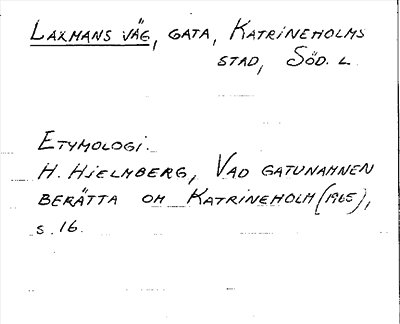 LAXMANS VÄG, GATA, KATRINEHOLMS
STAD, SÖD. L.
ETYMOLOGI.
H. HJELMBERG, VAD GATUNAMNEN
BERÄTTA OM KATRINEHOLM (1965),
s. 16.